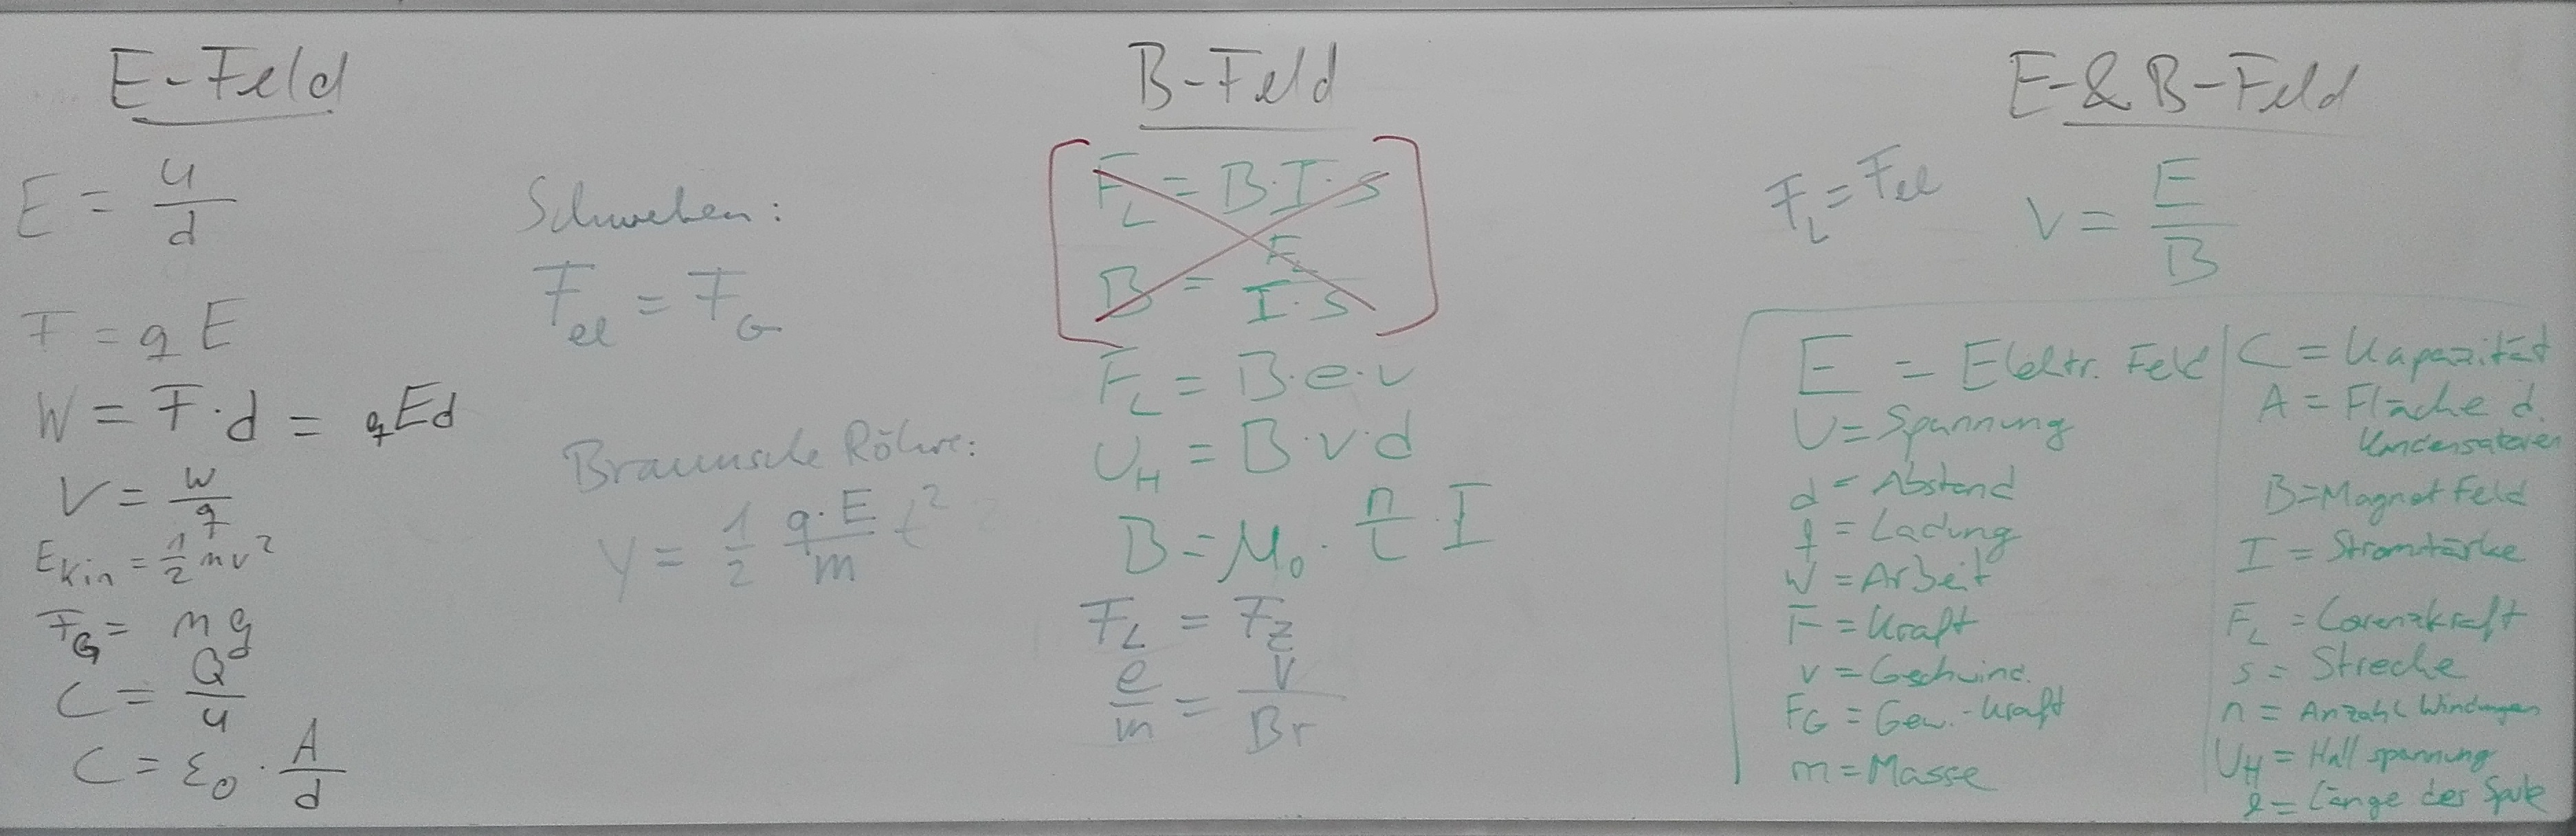 E-Feld
E = U/d
F = q E
W = F · d = qEd
V = W/q
E_kin = 1/2 mv²
F_G = mg
C = Q/U
C = ε₀ · A/d
Schweben:
F_el = F_G
Braunsche Röhre:
y = 1/2 q·E/m t²
B-Feld
F_L = B·I·s
B = F_L/I·s
F_L = B·e·v
U_H = B·v·d
B = μ₀ · n/l · I
F_L = F_Z
e/m = v/Br
E-&B-Feld
F_L = F_el
v = E/B
E = Elektr. Feld
U = Spannung
d = Abstand
q = Ladung
W = Arbeit
F = Kraft
v = Geschwind.
F_G = Gew.-Kraft
m = Masse
C = Kapazität
A = Fläche d.
Kondensatoren
B = Magnetfeld
I = Stromstärke
F_L = Lorenzkraft
s = Strecke
n = Anzahl Windungen
U_H = Hallspannung
l = Länge der Spule